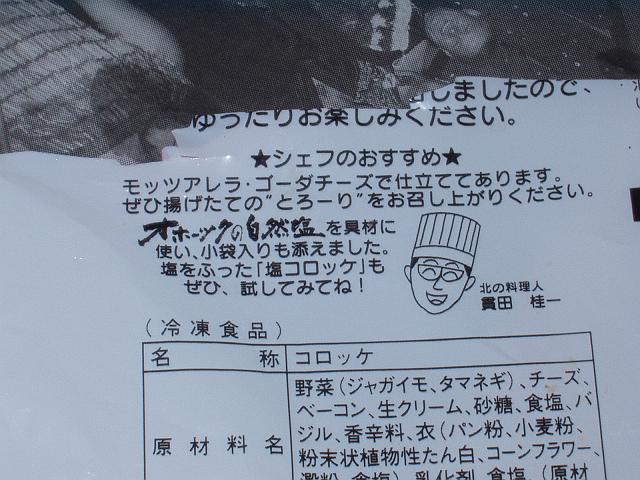 しましたので、
ゆったりお楽しみください。
★シェフのおすすめ★
モッツアレラ・ゴーダチーズで仕立ててあります。
ぜひ揚げたての"とろーり"をお召し上がりください。
オホーツクの自然塩を具材に
使い、小袋入りも添えました。
塩をふった「塩コロッケ」も
ぜひ、試してみてね！
北の料理人
貫田 桂一
(冷凍食品)
名称 コロッケ
原材料名
野菜(ジャガイモ、タマネギ)、チーズ、
ベーコン、生クリーム、砂糖、食塩、バ
ジル、香辛料、衣(パン粉、小麦粉、
粉末状植物性たん白、コーンフラワー、
澱粉、食塩)、乳化剤、食塩、(原材